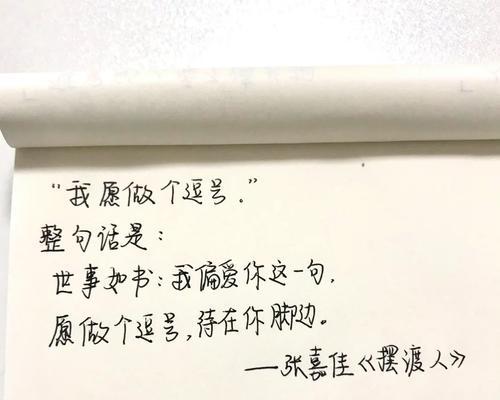 “我愿做个逗号。”
整句话是：
世事如书：我偏爱你这一句，
愿做个逗号，待在你脚边。
——张嘉佳《摆渡人》